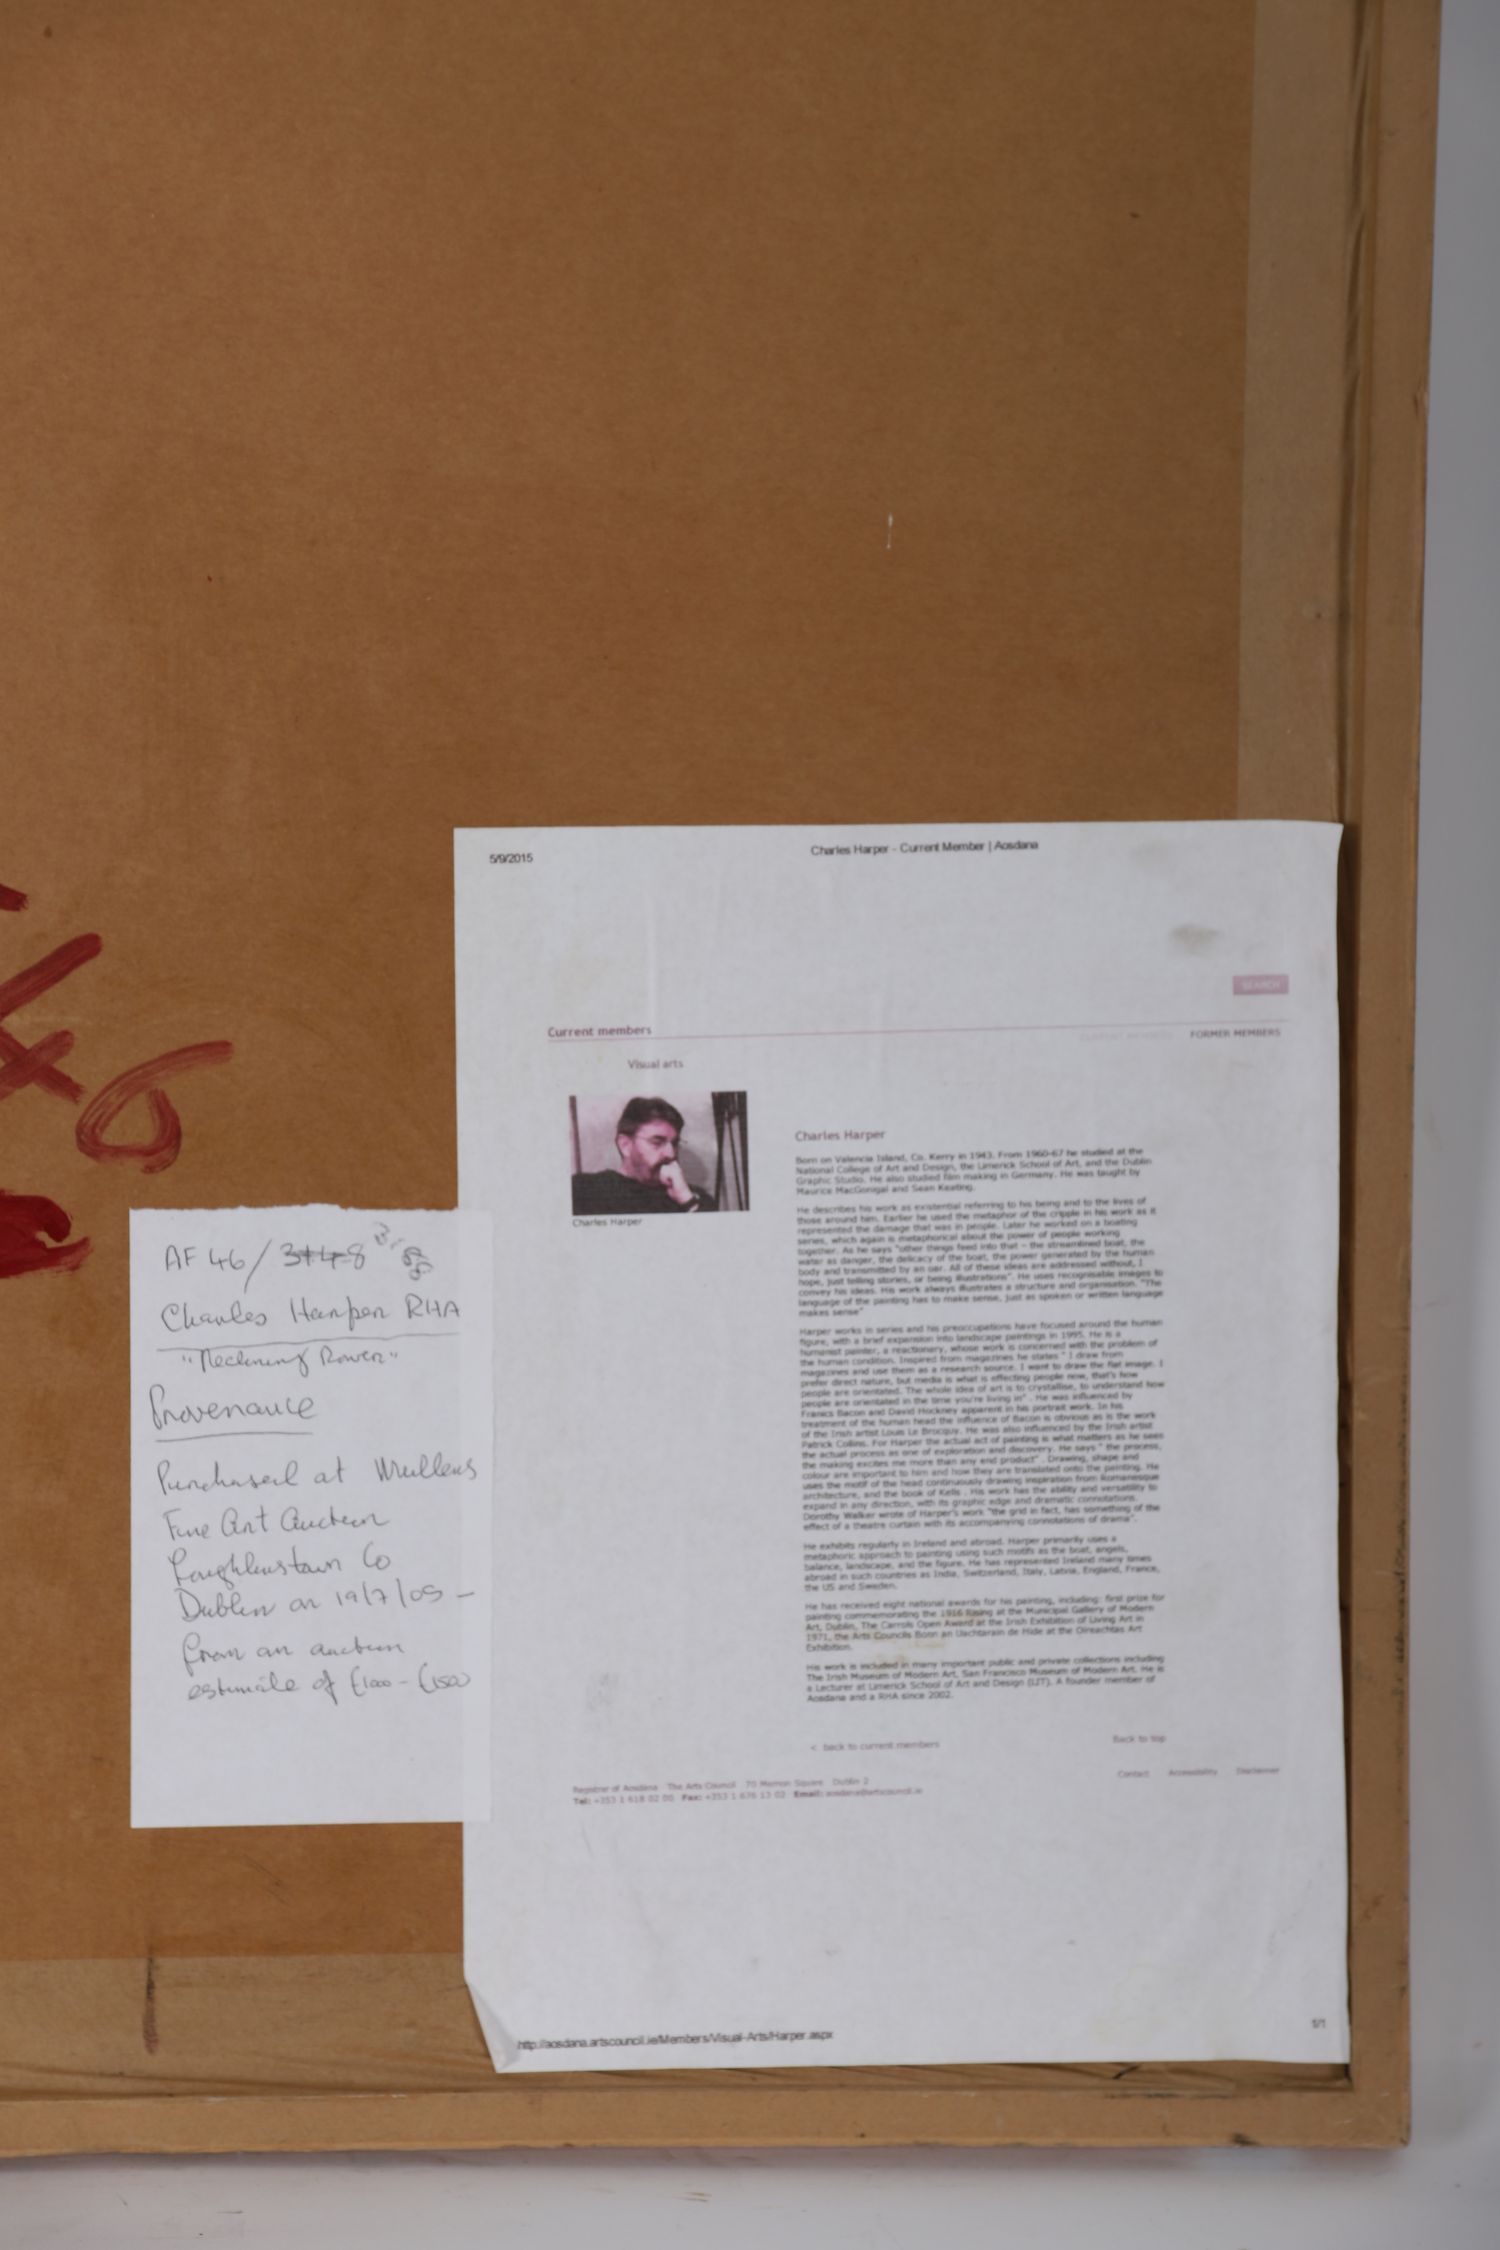 5/9/2015
Charles Harper - Current Member | Aosdana
SEARCH
Current members
FORMER MEMBERS
Visual arts
Charles Harper
Charles Harper
Born on Valencia Island, Co. Kerry in 1943. From 1960-67 he studied at the
National College of Art and Design, the Limerick School of Art, and the Dublin
Graphic Studio. He also studied film making in Germany. He was taught by
Maurice MacGonigal and Sean Keating.
He describes his work as existential referring to his being and to the lives of
those around him. Earlier he used the metaphor of the cripple in his work as it
represented the damage that was in people. Later he worked on a boating
series, which again is metaphorical about the power of people working
together. As he says "other things feed into that - the streamlined boat, the
water as danger, the delicacy of the boat, the power generated by the human
body and transmitted by an oar. All of these ideas are addressed without, I
hope, just telling stories, or being illustrations". He uses recognisable images to
convey his ideas. His work always illustrates a structure and organisation. "The
language of the painting has to make sense, just as spoken or written language
makes sense"
Harper works in series and his preoccupations have focused around the human
figure, with a brief expansion into landscape paintings in 1995. He is a
humanist painter, a reactionary, whose work is concerned with the problem of
the human condition. Inspired from magazines he states " I draw from
magazines and use them as a research source. I want to draw the flat image. I
prefer direct nature, but media is what is effecting people now, that's how
people are orientated. The whole idea of art is to crystallise, to understand how
people are orientated in the time you're living in" . He was influenced by
Francis Bacon and David Hockney apparent in his portrait work. In his
treatment of the human head the influence of Bacon is obvious as is the work
of the Irish artist Louis Le Brocquy. He was also influenced by the Irish artist
Patrick Collins. For Harper the actual act of painting is what matters as he sees
the actual process as one of exploration and discovery. He says " the process,
the making excites me more than any end product" . Drawing, shape and
colour are important to him and how they are translated onto the painting. He
uses the motif of the head continuously drawing inspiration from Romanesque
architecture, and the book of Kells . His work has the ability and versatility to
expand in any direction, with its graphic edge and dramatic connotations.
Dorothy Walker wrote of Harper's work "the grid in fact, has something of the
effect of a theatre curtain with its accompanying connotations of drama".
He exhibits regularly in Ireland and abroad. Harper primarily uses a
metaphoric approach to painting using such motifs as the boat, angels,
balance, landscape, and the figure. He has represented Ireland many times
abroad in such countries as India, Switzerland, Italy, Latvia, England, France,
the US and Sweden.
He has received eight national awards for his painting, including: first prize for
painting commemorating the 1916 Rising at the Municipal Gallery of Modern
Art, Dublin, The Carrolls Open Award at the Irish Exhibition of Living Art in
1971, the Arts Councils Bonn an Uachtarain de Hide at the Oireachtas Art
Exhibition.
His work is included in many important public and private collections including
The Irish Museum of Modern Art, San Francisco Museum of Modern Art. He is
a Lecturer at Limerick School of Art and Design (LIT). A founder member of
Aosdana and a RHA since 2002.
< back to current members
Back to top
Contact Accessibility Disclaimer
Registrar of Aosdana The Arts Council 70 Merrion Square Dublin 2
Tel: +353 1 618 02 00 Fax: +353 1 676 13 02 Email: aosdana@artscouncil.ie
http://aosdana.artscouncil.ie/Members/Visual-Arts/Harper.aspx
1/1
AF 46/
Charles Harper RHA
"Reclining Rower"
Provenance
Purchased at Mullens
Fine Art Auction
Loughlinstown Co
Dublin on 19/7/05 -
from an auction
estimate of €1000 - €1500